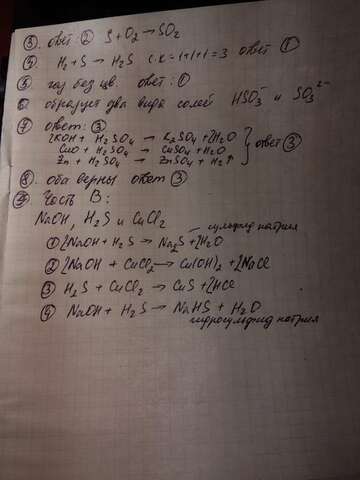 ③. ответ: ② S+O₂→SO₂
④ H₂+S → H₂S с.к = 1+1+1=3 ответ ①
⑤ газ без цв. ответ: ①
⑥ образует два вида солей HSO₃⁻ и SO₃²⁻
⑦ ответ: ③
2KOH + H₂SO₄ → K₂SO₄ + 2H₂O
CuO + H₂SO₄ → CuSO₄ + H₂O
Zn + H₂SO₄ → ZnSO₄ + H₂↑ ответ ③
⑧. оба верны ответ ③
Часть В:
NaOH, H₂S и CuCl₂
сульфид натрия
① 2NaOH + H₂S → Na₂S + 2H₂O
② 2NaOH + CuCl₂ → Cu(OH)₂ + 2NaCl
③ H₂S + CuCl₂ → CuS + 2HCl
④ NaOH + H₂S → NaHS + H₂O
гидросульфид натрия